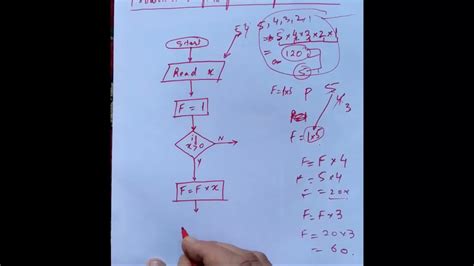 Start
Read x
F = 1
if
x>0
N
Y
F = F * x
5 4
5, 4, 3, 2, 1
5 * 4 * 3 * 2 * 1
=
120
5
F = 1x5
p
5
4
3
F = 1x5
F = F x 4
F = 5 x 4
= 20x
F = F x 3
F = 20 x 3
= 60.